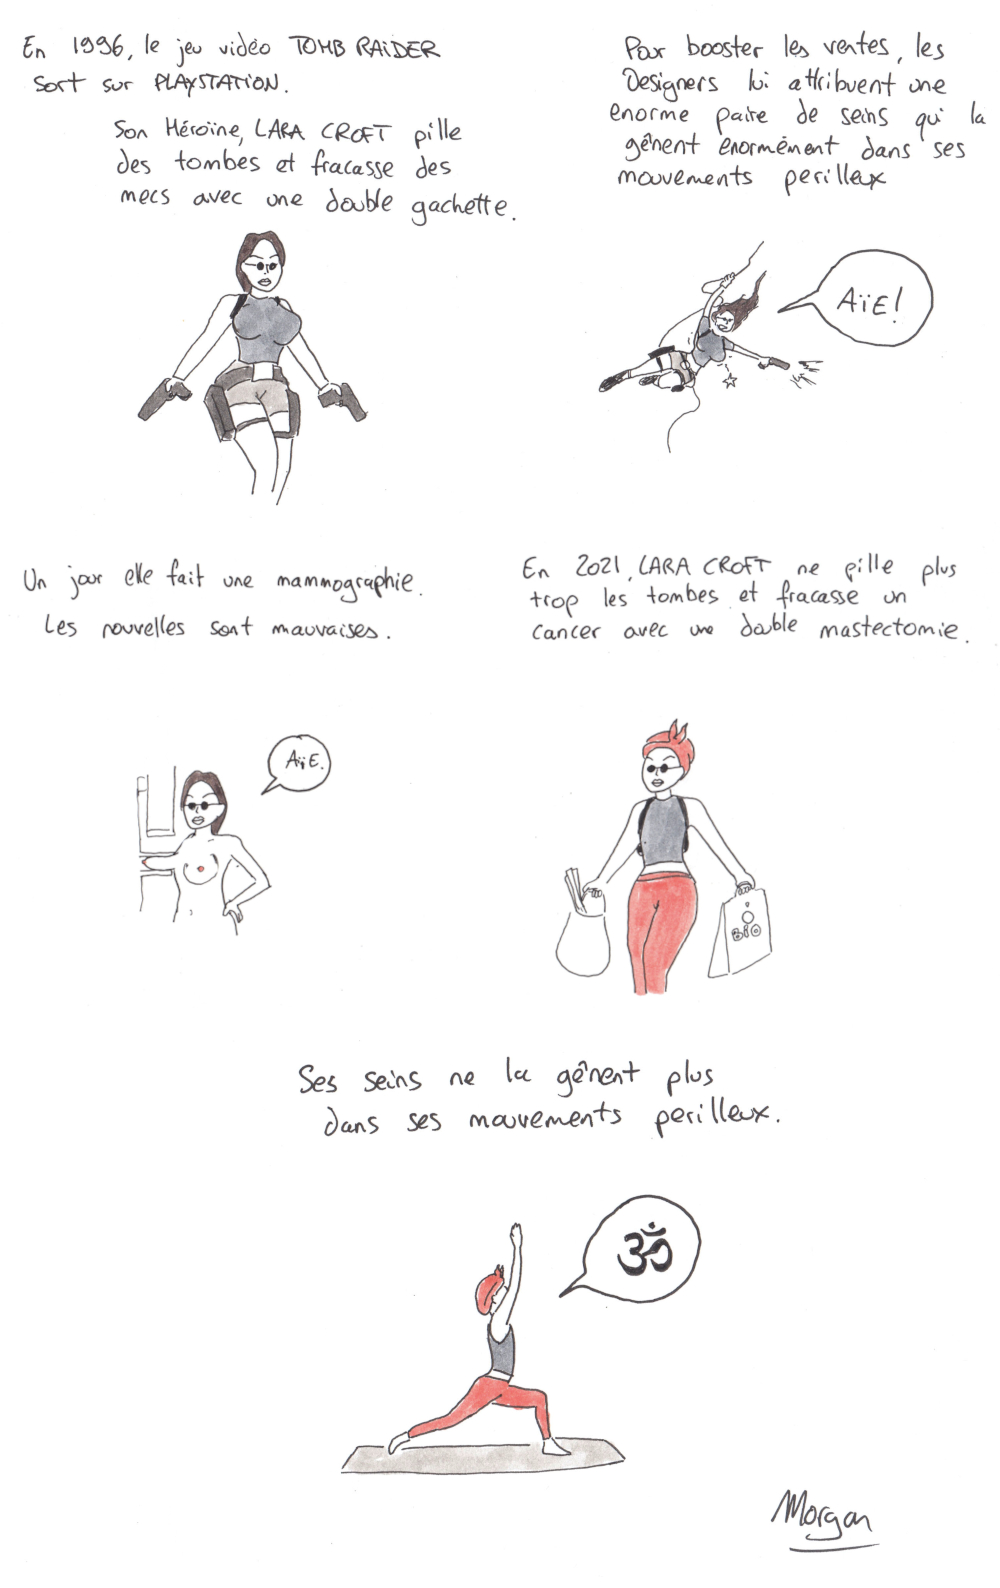 En 1996, le jeu vidéo TOMB RAiDER
sort sur PLAYSTATiON.
Son Héroïne, LARA CROFT pille
des tombes et fracasse des
mecs avec une double gachette.
Pour booster les ventes, les
Designers lui attribuent une
enorme paire de seins qui la
gênent énormément dans ses
mouvements perilleux
AïE!
Un jour elle fait une mammographie.
Les nouvelles sont mauvaises.
AïE.
En 2021, LARA CROFT ne pille plus
trop les tombes et fracasse un
cancer avec une double mastectomie.
BiO
Ses seins ne la gênent plus
dans ses mouvements perilleux.
ॐ
Morgan